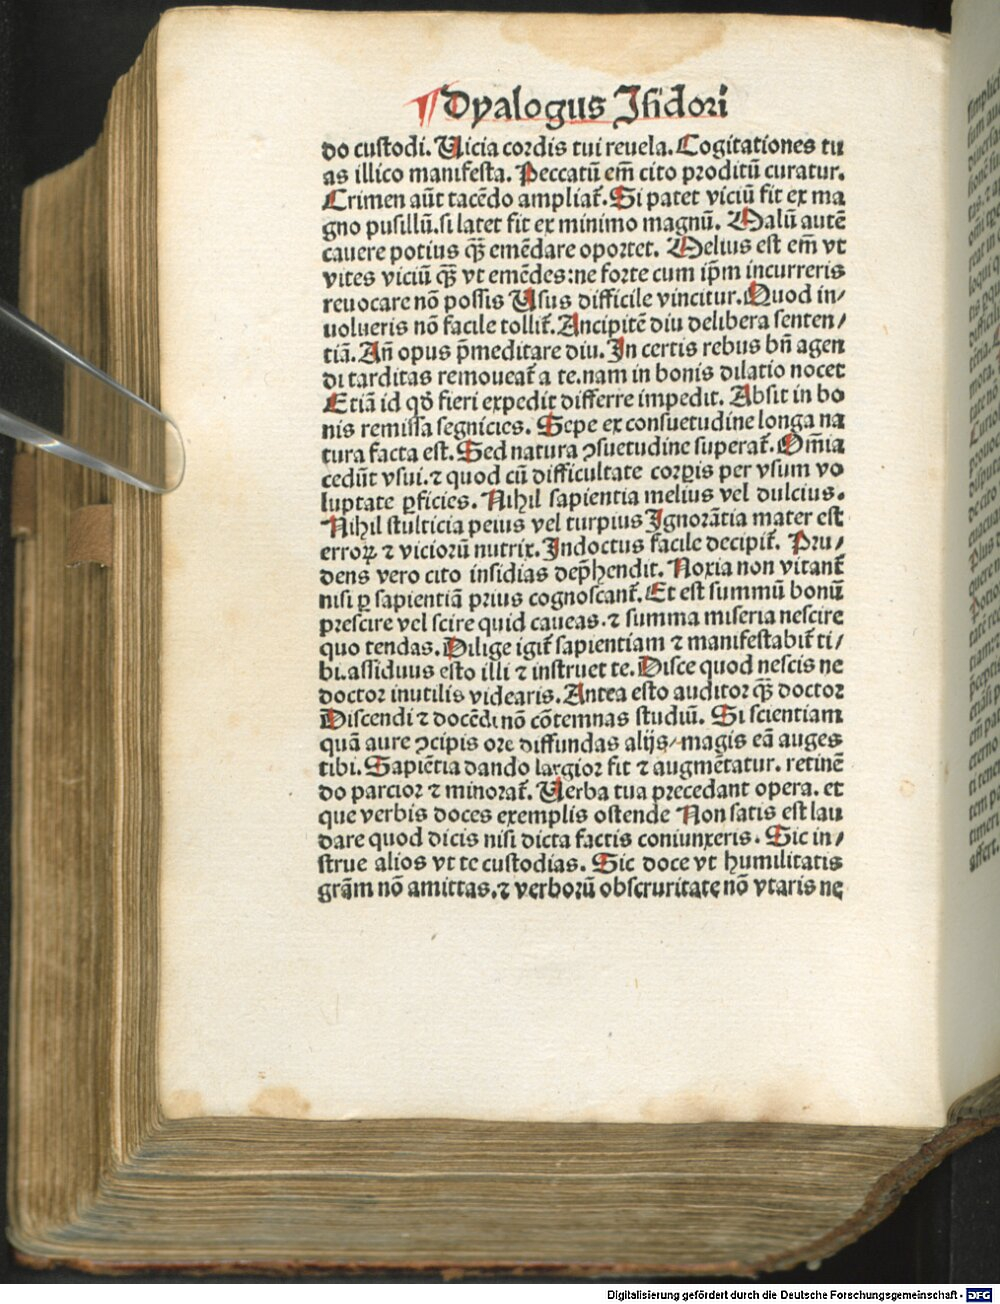 ¶ Dyalogus Iſidori
do cuſtodi. Uicia cordis tui reuela. Cogitationes tu
as illico manifeſta. Peccatū em̄ cito proditū curatur.
Crimen aūt tacēdo ampliat̄. Si patet viciū fit ex ma
gno puſillū. ſi latet fit ex minimo magnū. Malū autē
cauere potius qꝫ̄ emēdare oportet. Melius eſt em̄ vt
vites viciū qꝫ̄ vt emēdes: ne forte cum ip̄m incurreris
reuocare nō poſſis Uſus difficile vincitur. Quod in/
uolueris nō facile tollit̄. Ancipitē diu delibera ſenten/
tiā. An̄ opus p̄meditare diu. In certis rebus bn̄ agen
di tarditas remoueat̄ a te. nam in bonis dilatio nocet
Etiā id qḋ fieri expedit differre impedit. Abſit in bo
nis remiſſa ſegnicies. Sepe ex conſuetudine longa na
tura facta eſt. Sed natura ꝯſuetudine ſuperat̄. Om̄ia
cedūt vſui. ⁊ quod cū difficultate corꝑis per vſum vo
luptate ꝑficies. Nihil ſapientia melius vel dulcius.
Nihil ſtulticia peius vel turpius Ignorātia mater eſt
erroꝝ ⁊ viciorū nutrix. Indoctus facile decipit̄. Pru/
dens vero cito inſidias dep̄hendit. Noxia non vitant̄
niſi ꝑ ſapientiā prius cognoſcant̄. Et eſt ſummū bonū
preſcire vel ſcire quid caueas. ⁊ ſumma miſeria neſcire
quo tendas. Dilige igit̄ ſapientiam ⁊ manifeſtabit̄ ti/
bi. aſſiduus eſto illi ⁊ inſtruet te. Diſce quod neſcis ne
doctor inutilis videaris. Antea eſto auditor qꝫ̄ doctor
Diſcendi ⁊ docēdi nō cōtemnas ſtudiū. Si ſcientiam
quā aure ꝯcipis ore diffundas alijs/ magis eā auges
tibi. Sapiētia dando largior fit ⁊ augmētatur. retinē
do parcior ⁊ minorat̄. Uerba tua precedant opera. et
que verbis doces exemplis oſtende Non ſatis eſt lau
dare quod dicis niſi dicta factis coniunxeris. Sic in/
ſtrue alios vt te cuſtodias. Sic doce vt humilitatis
grām nō amittas. ⁊ verborū obſcruritate nō vtaris ne
Digitalisierung gefördert durch die Deutsche Forschungsgemeinschaft - DFG